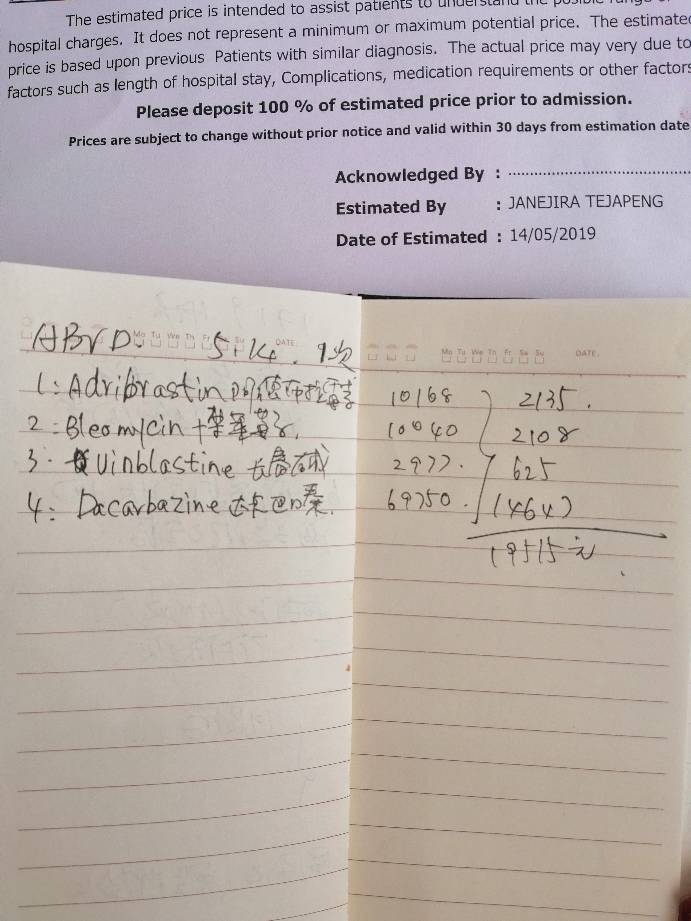 The estimated price is intended to assist patients to understand the possible range
hospital charges. It does not represent a minimum or maximum potential price. The estimated
price is based upon previous Patients with similar diagnosis. The actual price may very due to
factors such as length of hospital stay, Complications, medication requirements or other factors
Please deposit 100 % of estimated price prior to admission.
Prices are subject to change without prior notice and valid within 30 days from estimation date
Acknowledged By :
Estimated By : JANEJIRA TEJAPENG
Date of Estimated : 14/05/2019
Mo Tu We Th Fr Sa Su DATE.
ABVD 1次
1: Adribrastin 10168 2135.
2: Bleomycin 10040 2108
3. Vinblastine 长春碱 2977. 625
4: Dacarbazine 达卡巴嗪. 69750. 14647
19515元